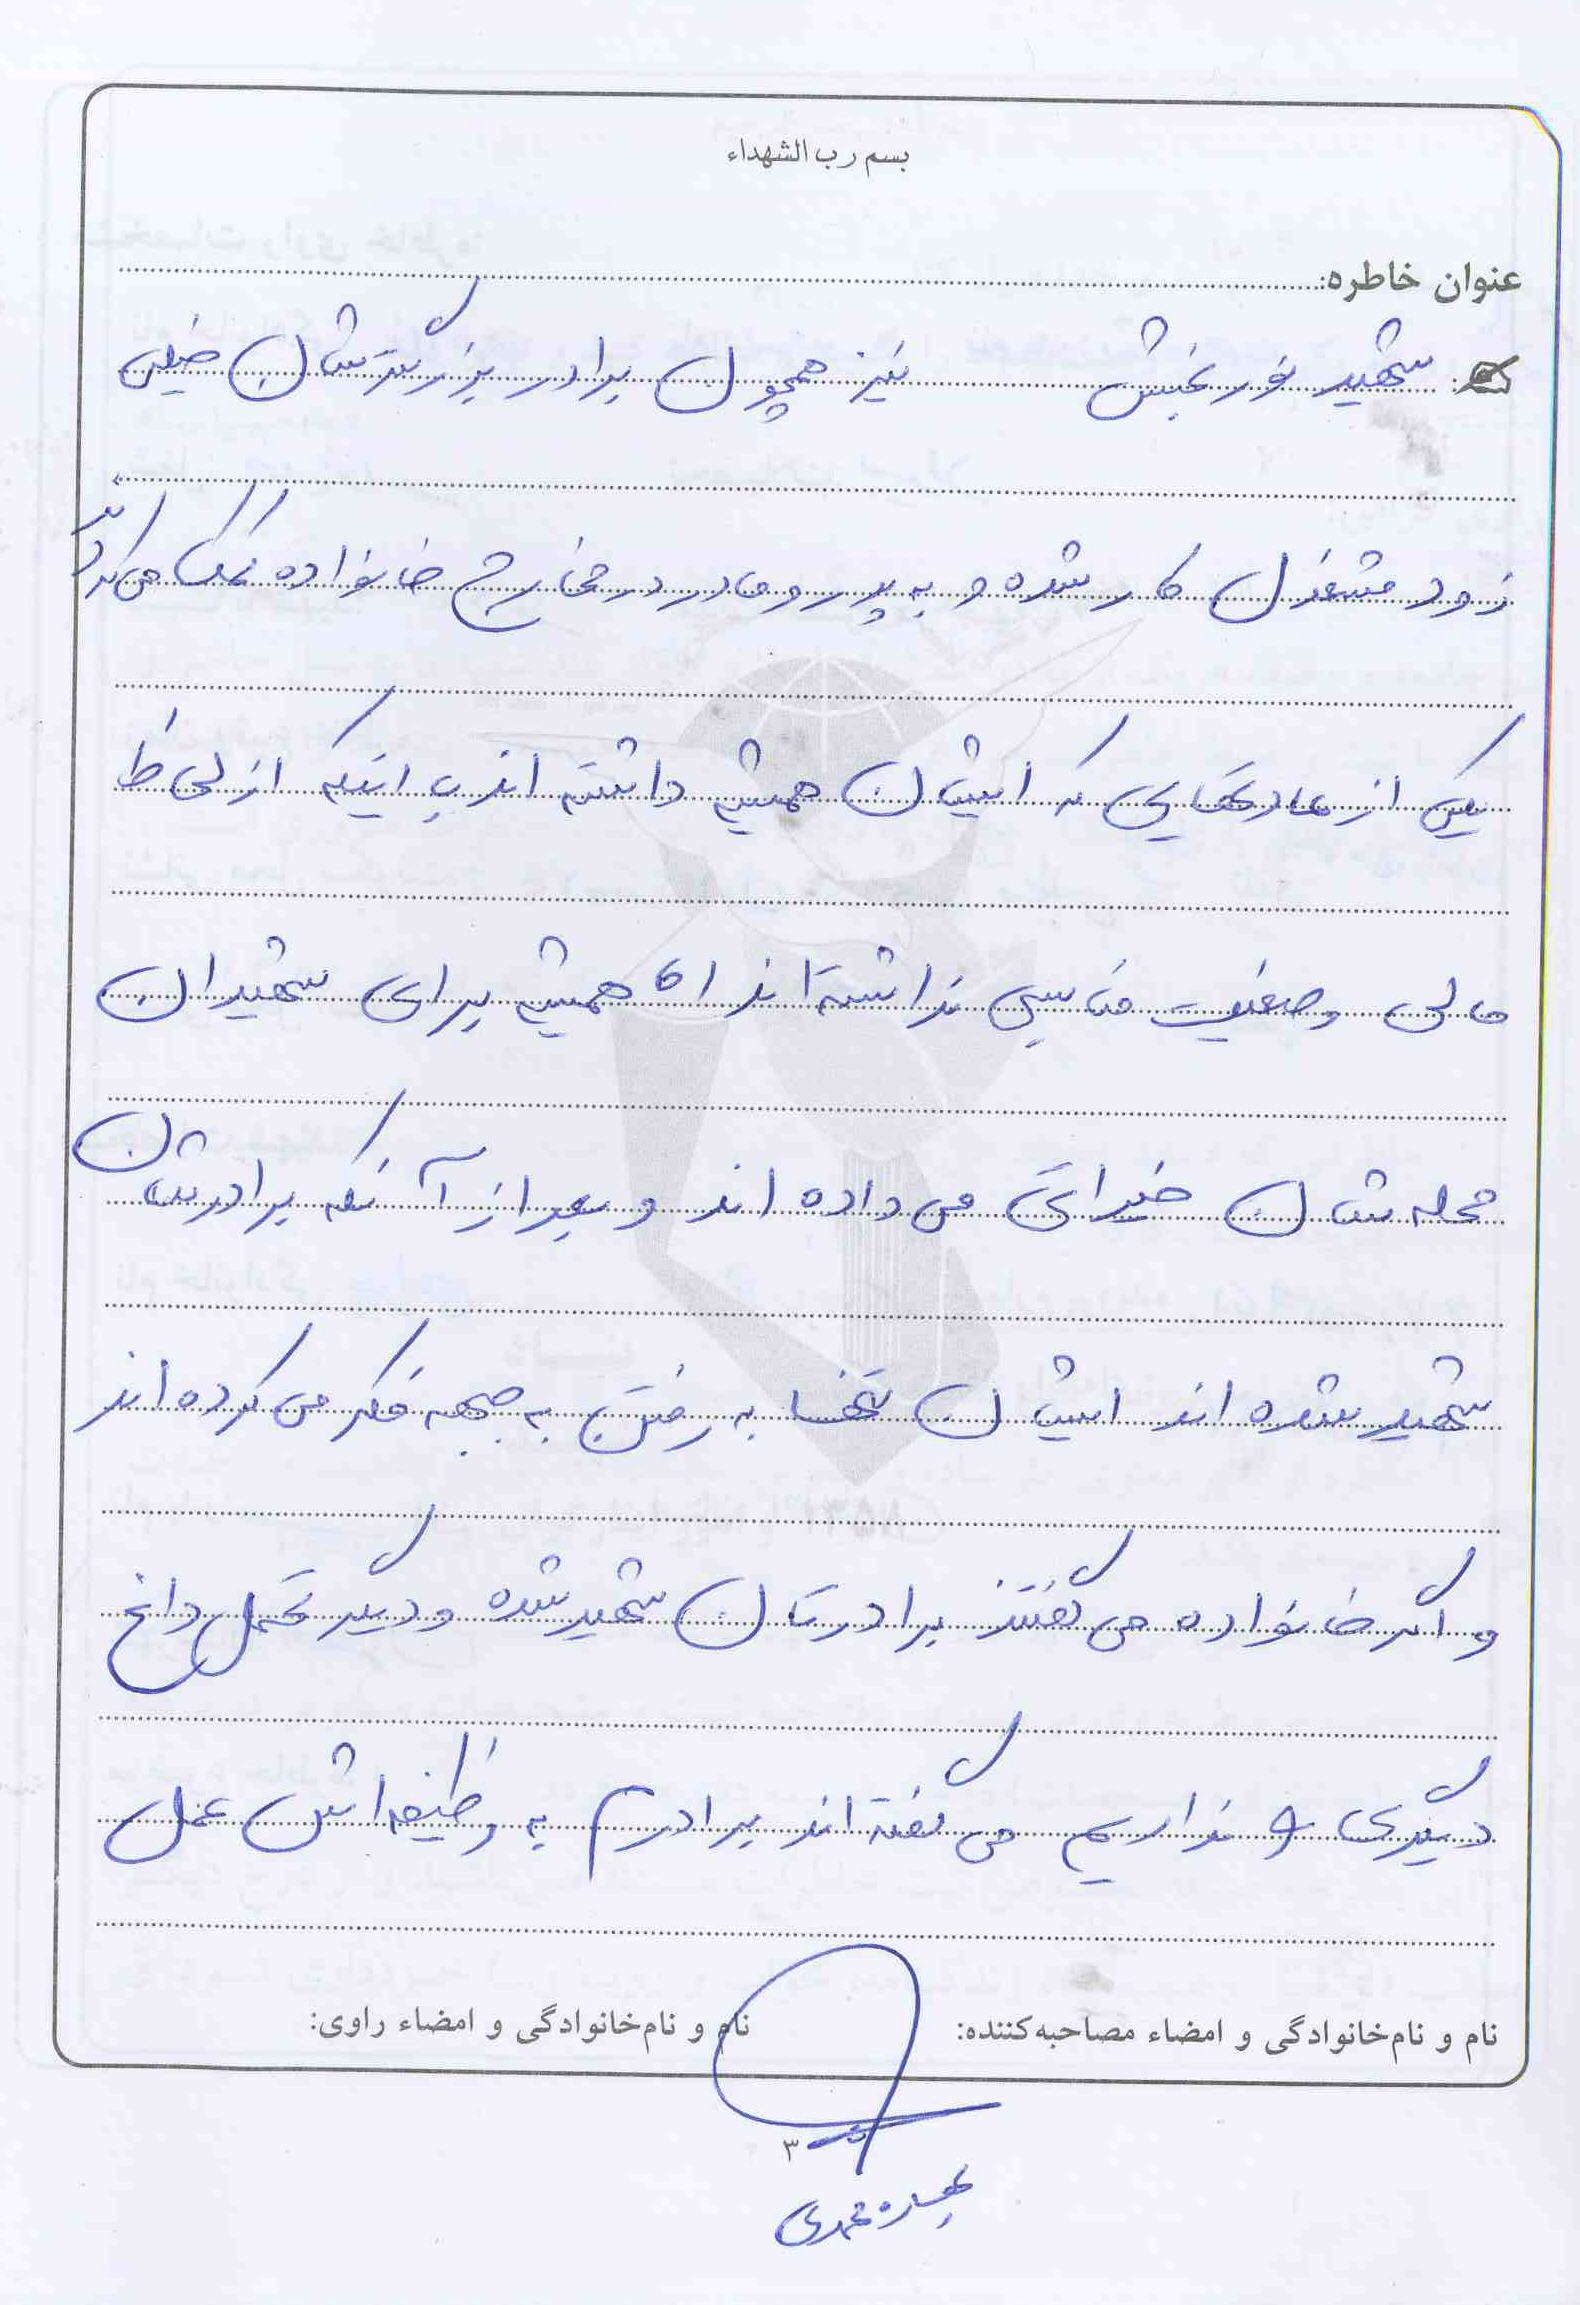 بسم رب الشهداء
عنوان خاطره:
شهید نوربخش نیز همچون برادر بزرگترشان خیلی
زود مشغول کار شده و به پدر و مادر در مخارج خانواده کمک می‌کردند
یکی از عادتهایی که ایشان همیشه داشته اند با اینکه از لحاظ
مالی وضعیت مناسبی نداشته اند اما همیشه برای شهیدان
محله شان خیراتی می داده اند و بعد از آنکه برادرشان
شهید شده اند ایشان تنها به رفتن به جبهه فکر می کرده اند
و اگر خانواده می گفتند برادرتان شهید شده و دیگر تحمل داغ
دیگری نداریم می گفته اند برادرم به وظیفه اش عمل
نام و نام‌خانوادگی و امضاء مصاحبه‌کننده: نام و نام‌خانوادگی و امضاء راوی:
۳
محمدی